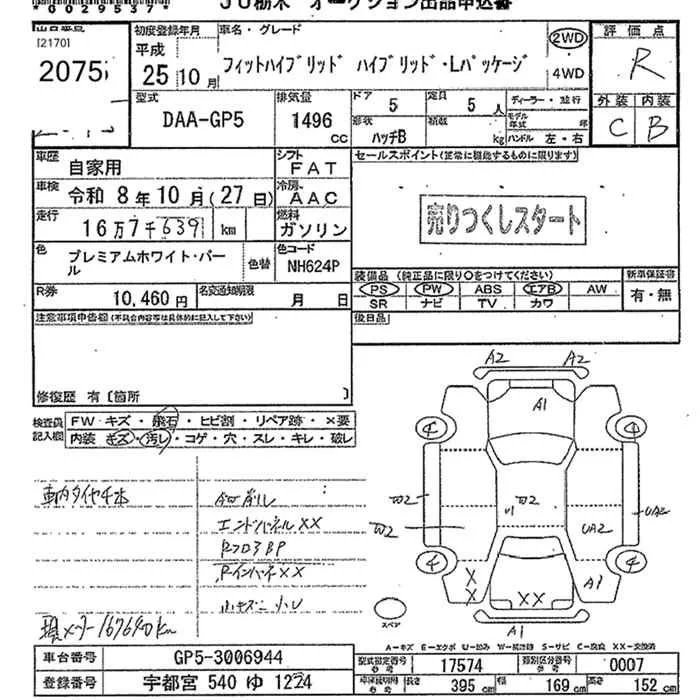 *0029537*
JU栃木 オークション出品申込書
出品番号
[2170]
2075
初度登録年月
平成
25年10月
車名・グレード
フィットハイブリッド ハイブリッド・Lパッケージ
2WD
・
4WD
評価点
R
外装 内装
C B
型式
DAA-GP5
排気量
1496 cc
ドア 5
定員 5 人
形状 ハッチB
積載 kg
ディーラー・並行
モデル年式 年
ハンドル 左・右
車歴 自家用
シフト FAT
車検 令和 8年10月(27日)
冷房 AAC
走行 16万7千639 km
燃料 ガソリン
色 プレミアムホワイト・パール
色替
色コード NH624P
R券 10,460円
名変通知期限 月 日
セールスポイント(正常に機能するものに限ります)
売りつくしスタート
装備品 (純正品に限り○をつけてください)
PS PW ABS エアB AW
SR ナビ TV カワ
新車保証書
有・無
注意事項申告欄(不具合内容等は具体的に記入して下さい)
後日品
修復歴 有〔箇所 〕
検査員記入欄
FW キズ・飛石・ヒビ割・リペア跡・×要
内装 キズ・汚レ・コゲ・穴・スレ・キレ・破レ
車内タイヤ4本
エンドパネルXX
RフロアBP
RインナーXX
小キズ 小U
現メーター167640km
A2 A2
A1
4 4
W2
W2
UA2
UA2
4 4
X
X
XX
A1
A1
スペア
A-キズ E-エクボ U-凹み W-補修跡 S-サビ C-腐食 XX-交換済
車台番号 GP5-3006944
登録番号 宇都宮 540 ゆ 1224
型式指定番号 参考 17574
類別区分番号 参考 0007
車検証明用 参考 長さ 395 cm 幅 169 cm 高さ 152 cm